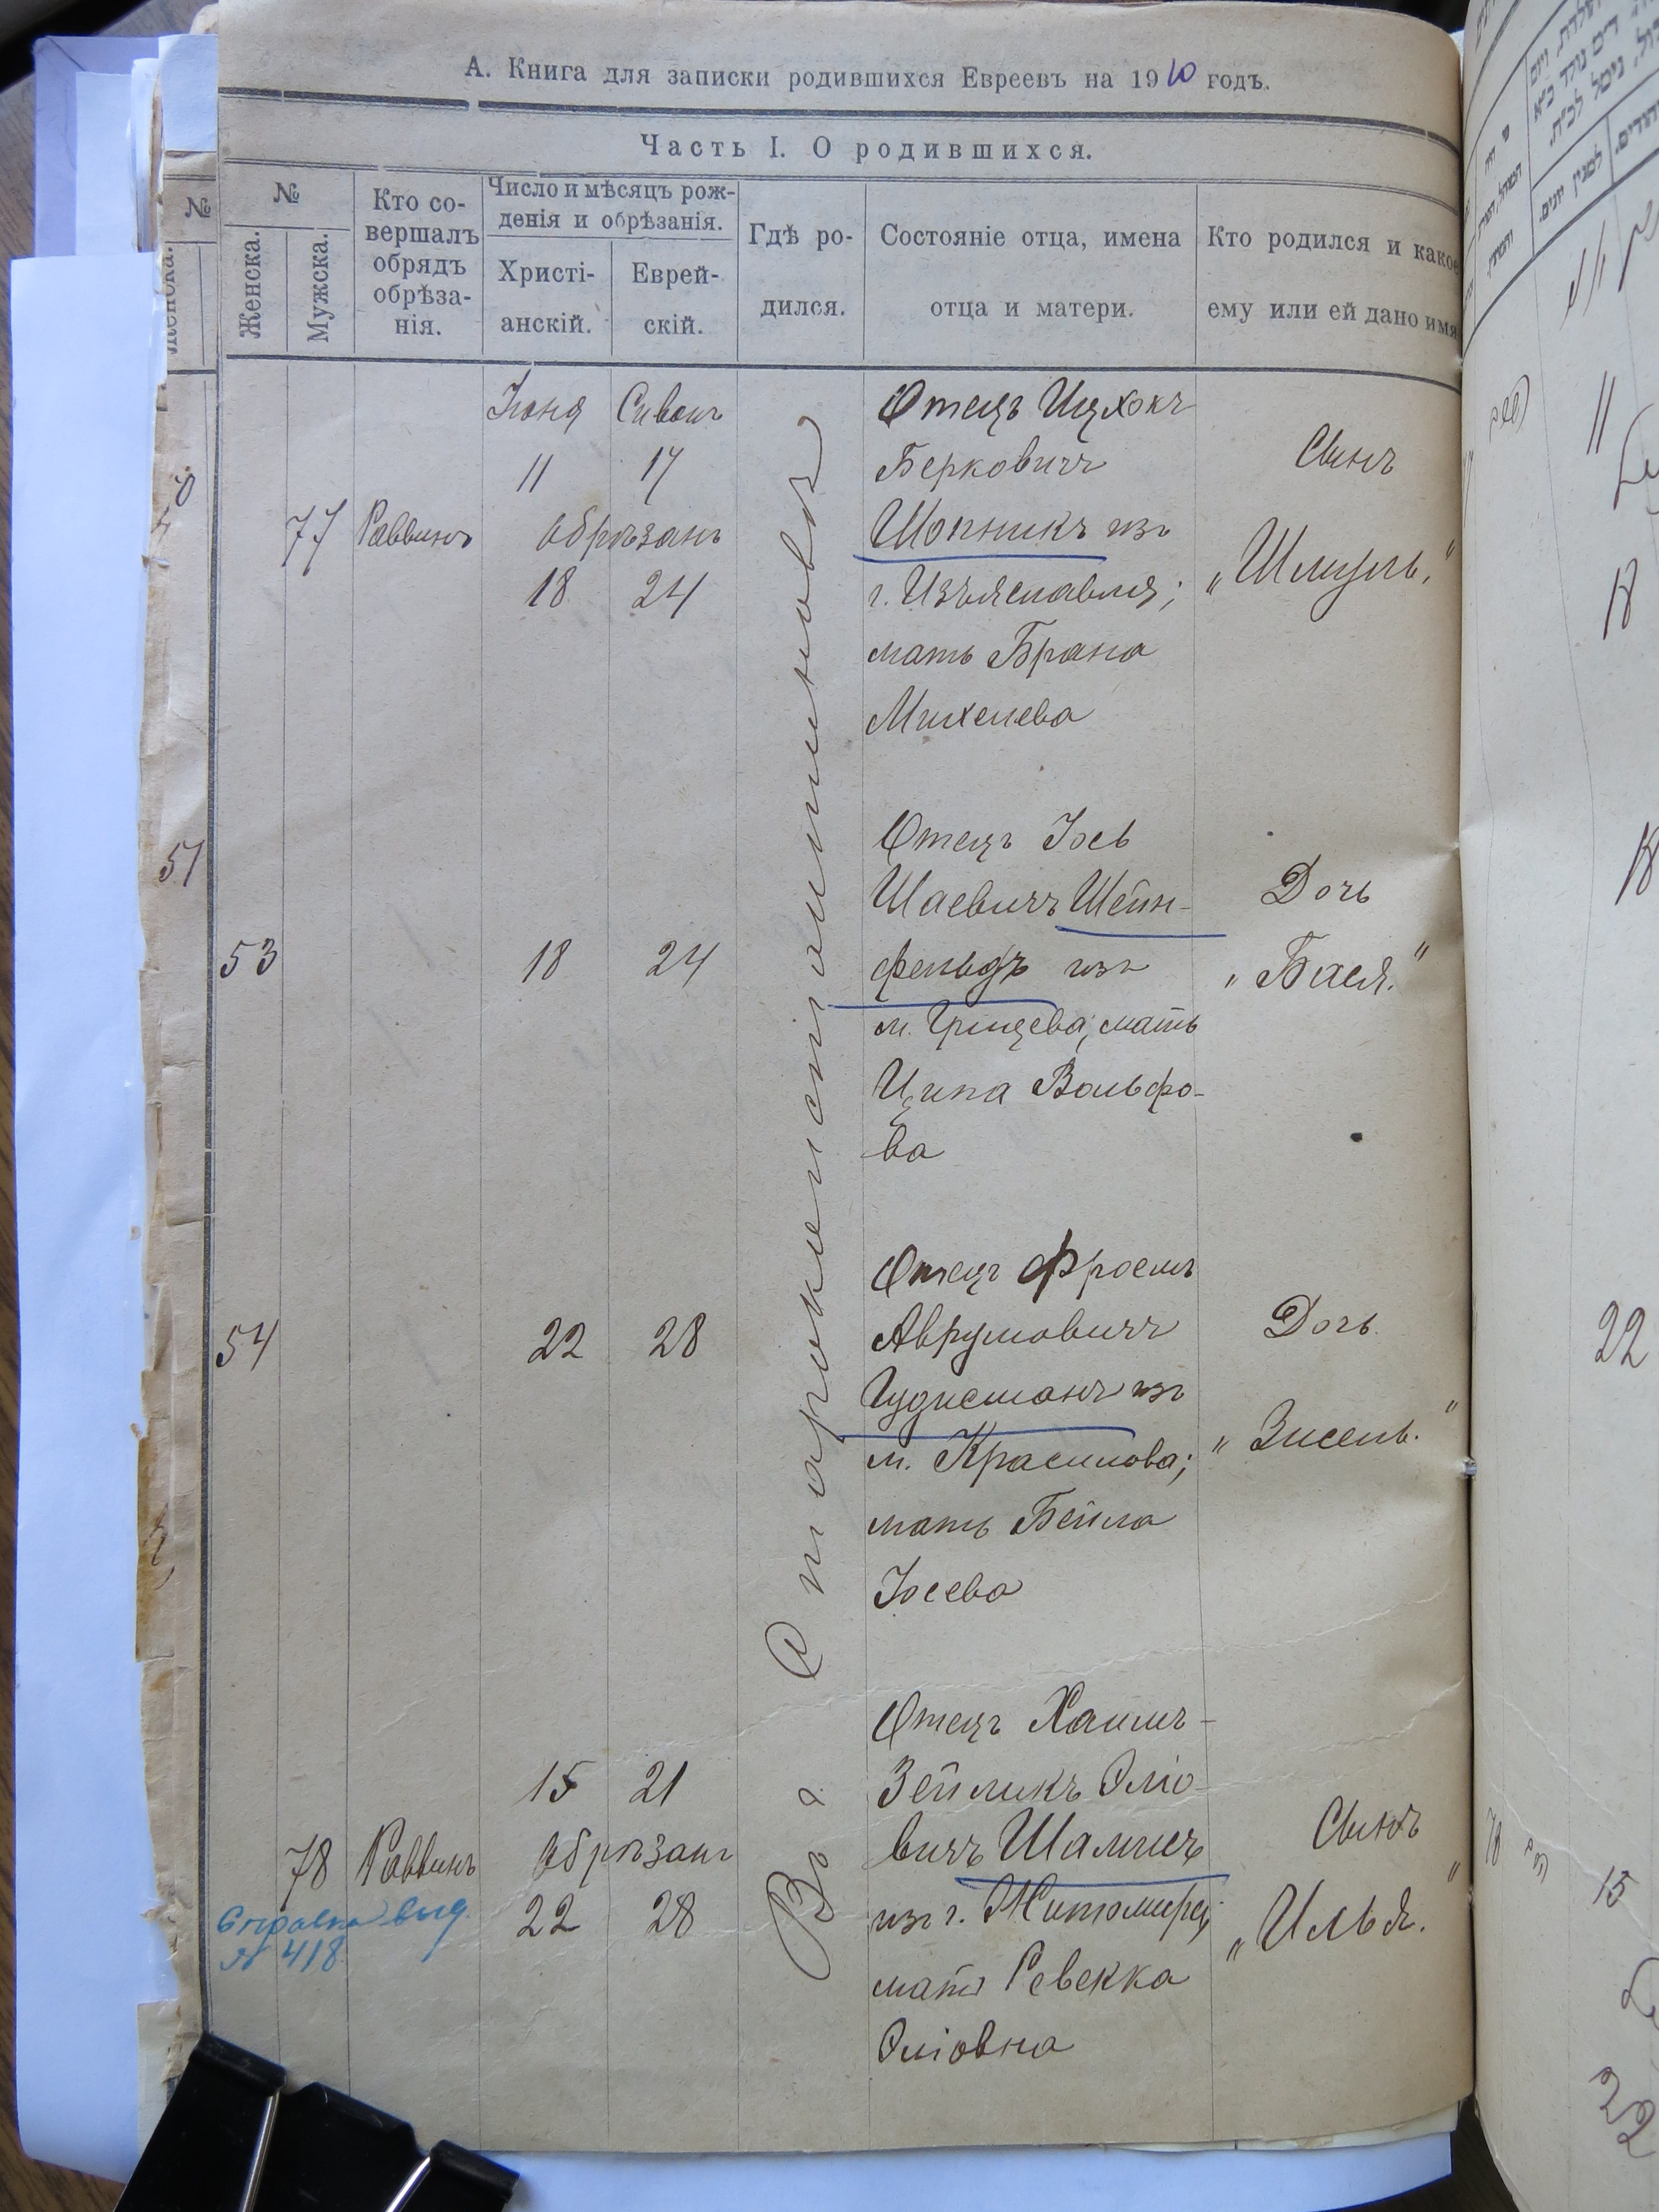 А. Книга для записки родившихся Евреевъ на 1910 годъ.
Часть I. О родившихся.
№
№
Женска.
Мужска.
Кто со-
вершалъ
обрядъ
обрѣза-
нія.
Число и мѣсяцъ рож-
денія и обрѣзанія.
Христі-
анскій.
Еврей-
скій.
Гдѣ ро-
дился.
Состояніе отца, имена
отца и матери.
Кто родился и какое
ему или ей дано имя
Въ г. Староконстантиновѣ
77
Раввинъ
Іюня Сиванъ
11 17
обрѣзанъ
18 24
Отецъ Ицхокъ
Берковичъ
Шопникъ изъ
г. Изъяславля;
мать Брана
Михелева
Сынъ
„Шмуль."
51
53
18 24
Отецъ Іось
Шаевичъ Шейн-
фельдъ изъ
м. Грицева; мать
Ципа Вольфо-
ва
Дочь
„Бася."
54
22 28
Отецъ Фроемъ
Аврумовичъ
изъ
м. Красилова;
мать Бейла
Іосева
Дочь.
„Зисель."
78
Раввинъ
15 21
обрѣзанъ
22 28
Справка выд.
№ 418
Отецъ Хаимъ-
Зейликъ Эліо-
вичъ
изъ г. Житомира;
мать Ревекка
Эліовна
Сынъ
„Илья."
11
18
18
22
78
15
22